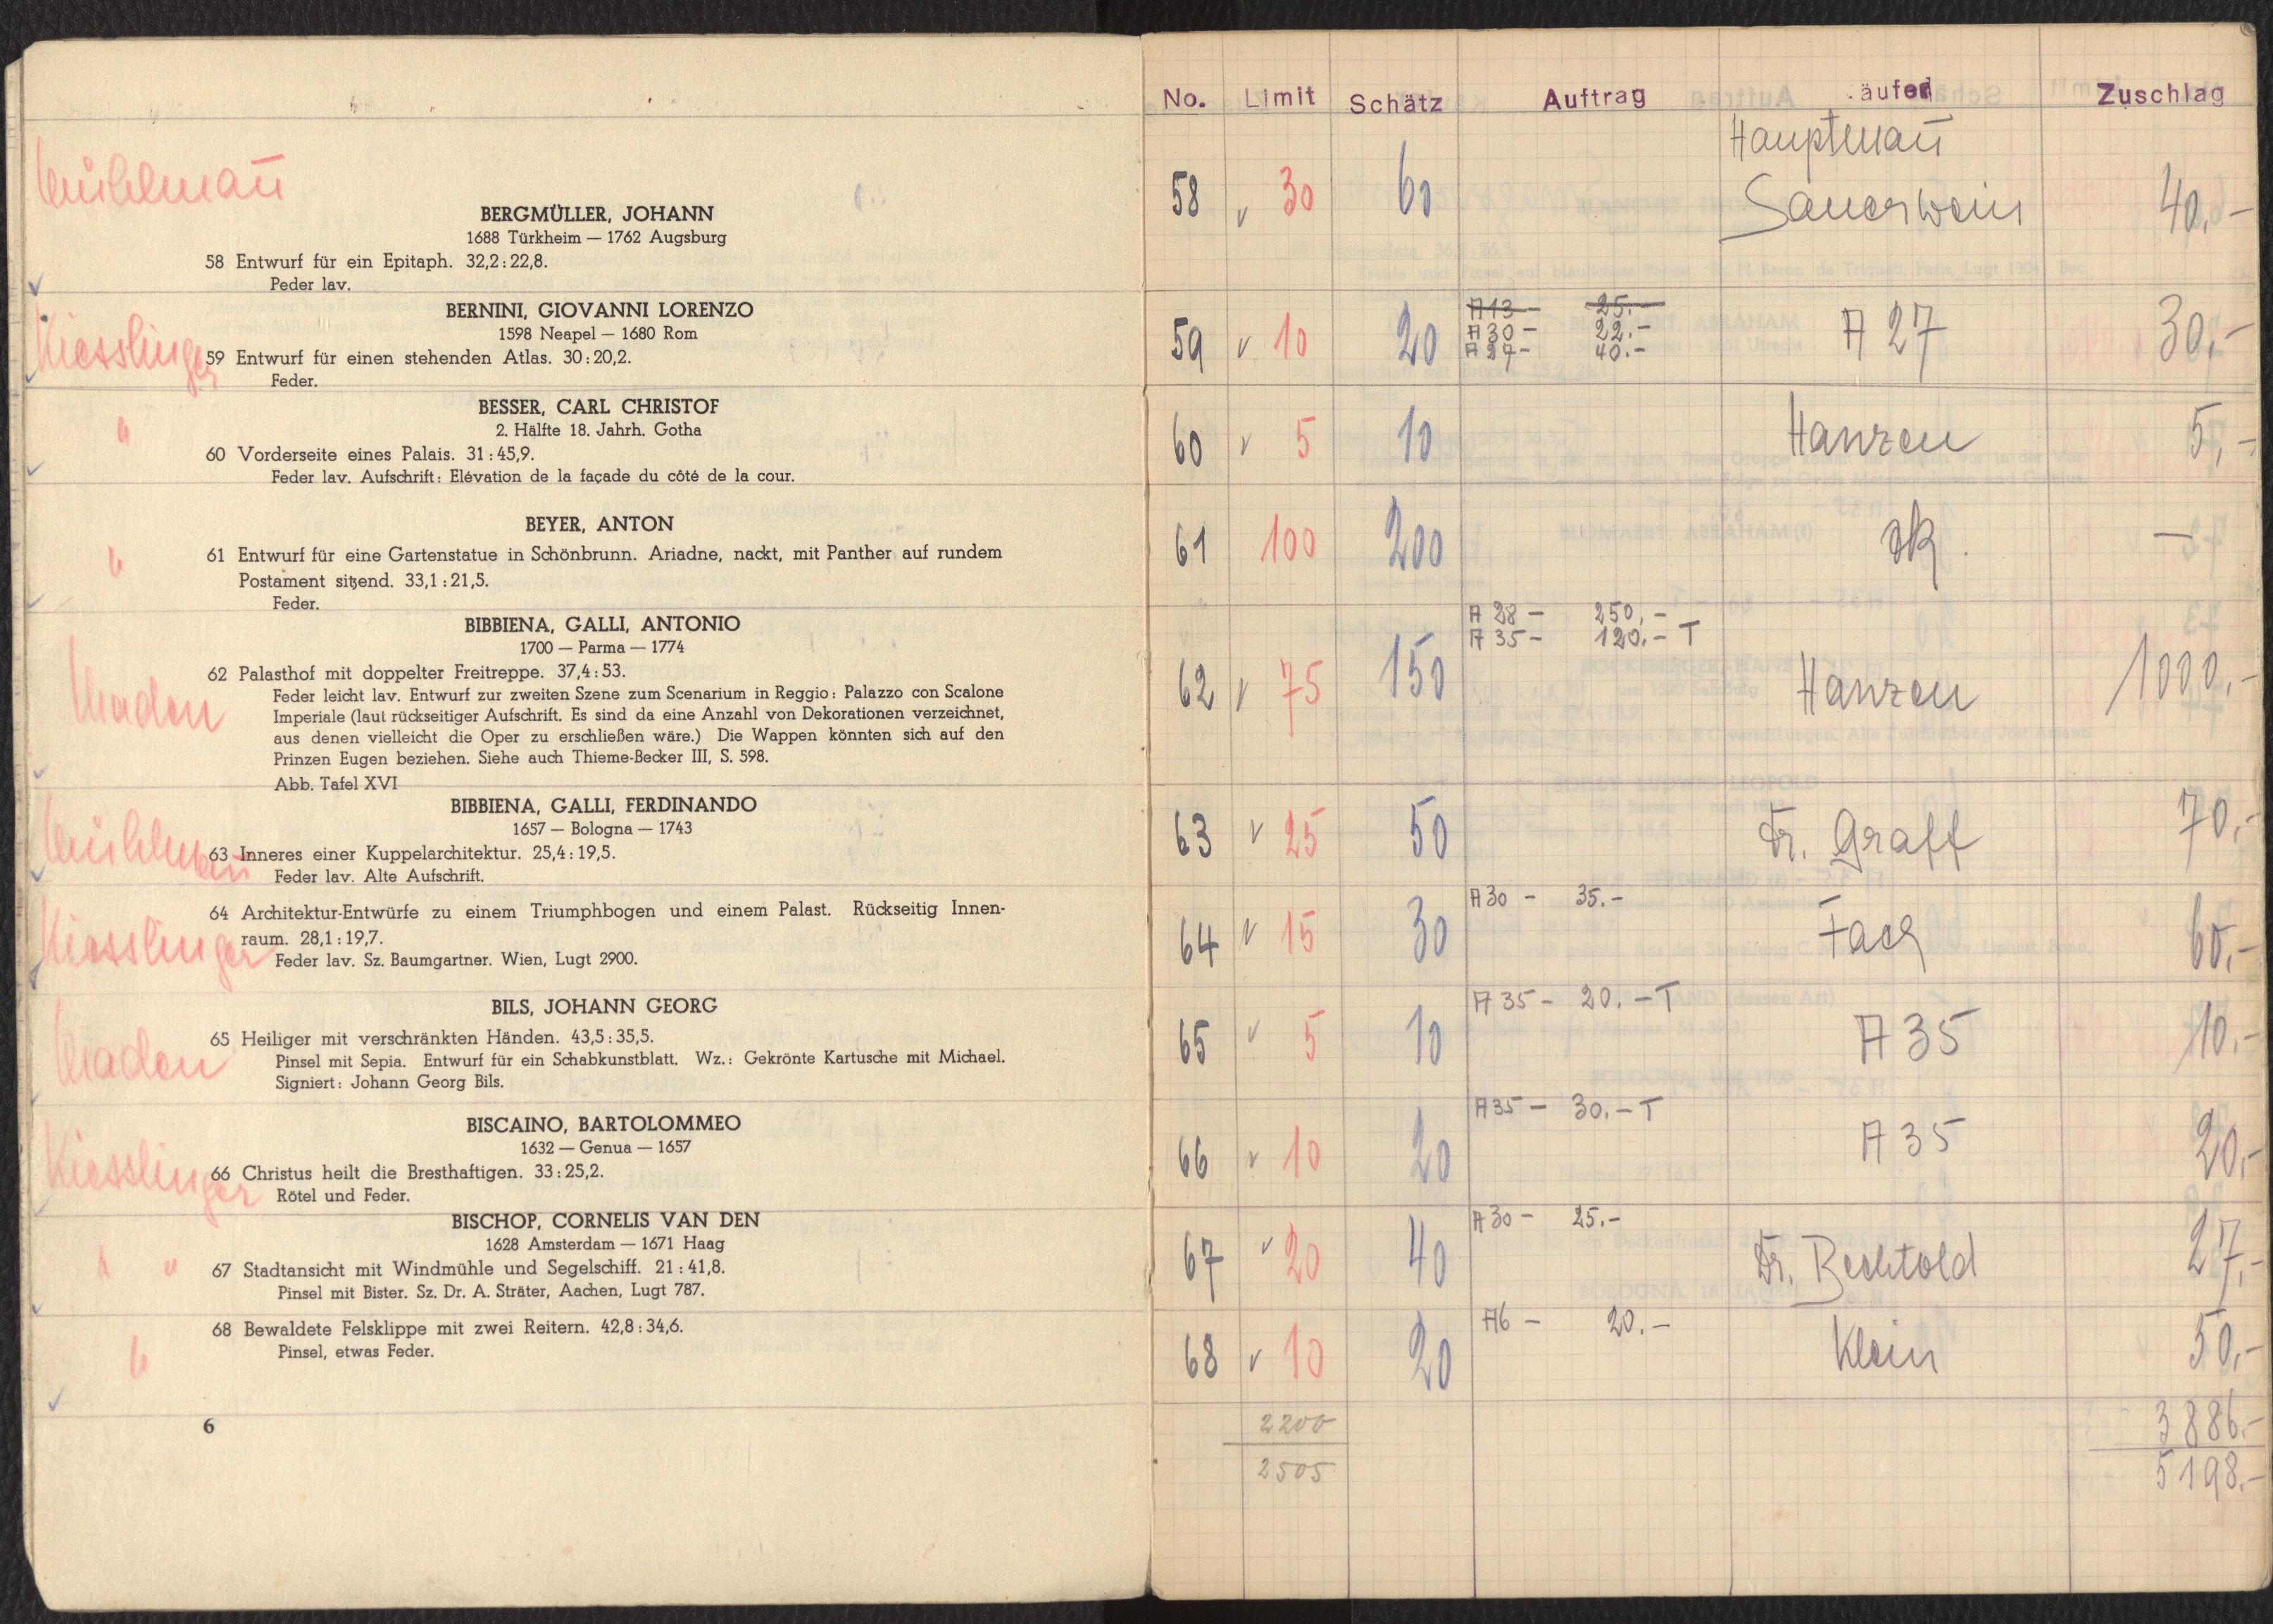 Kühlmañ
BERGMÜLLER, JOHANN
1688 Türkheim — 1762 Augsburg
58 Entwurf für ein Epitaph. 32,2 : 22,8.
Peder lav.
BERNINI, GIOVANNI LORENZO
1598 Neapel — 1680 Rom
Kiesslinger
59 Entwurf für einen stehenden Atlas. 30 : 20,2.
Feder.
BESSER, CARL CHRISTOF
2. Hälfte 18. Jahrh. Gotha
"
60 Vorderseite eines Palais. 31 : 45,9.
Feder lav. Aufschrift: Elévation de la façade du côté de la cour.
BEYER, ANTON
"
61 Entwurf für eine Gartenstatue in Schönbrunn. Ariadne, nackt, mit Panther auf rundem
Postament sitzend. 33,1 : 21,5.
Feder.
BIBBIENA, GALLI, ANTONIO
1700 — Parma — 1774
62 Palasthof mit doppelter Freitreppe. 37,4 : 53.
Feder leicht lav. Entwurf zur zweiten Szene zum Scenarium in Reggio: Palazzo con Scalone
Imperiale (laut rückseitiger Aufschrift. Es sind da eine Anzahl von Dekorationen verzeichnet,
aus denen vielleicht die Oper zu erschließen wäre.) Die Wappen könnten sich auf den
Prinzen Eugen beziehen. Siehe auch Thieme-Becker III, S. 598.
Abb. Tafel XVI
BIBBIENA, GALLI, FERDINANDO
1657 — Bologna — 1743
Kühlmañ
63 Inneres einer Kuppelarchitektur. 25,4 : 19,5.
Feder lav. Alte Aufschrift.
64 Architektur-Entwürfe zu einem Triumphbogen und einem Palast. Rückseitig Innen-
raum. 28,1 : 19,7.
Kiesslinger
Feder lav. Sz. Baumgartner. Wien, Lugt 2900.
BILS, JOHANN GEORG
65 Heiliger mit verschränkten Händen. 43,5 : 35,5.
Pinsel mit Sepia. Entwurf für ein Schabkunstblatt. Wz.: Gekrönte Kartusche mit Michael.
Signiert: Johann Georg Bils.
BISCAINO, BARTOLOMMEO
1632 — Genua — 1657
Kiesslinger
66 Christus heilt die Bresthaftigen. 33 : 25,2.
Rötel und Feder.
BISCHOP, CORNELIS VAN DEN
1628 Amsterdam — 1671 Haag
" "
67 Stadtansicht mit Windmühle und Segelschiff. 21 : 41,8.
Pinsel mit Bister. Sz. Dr. A. Sträter, Aachen, Lugt 787.
68 Bewaldete Felsklippe mit zwei Reitern. 42,8 : 34,6.
"
Pinsel, etwas Feder.
6
No. Limit Schätz Auftrag äufer Zuschlag
Hauptmañ
58 v 30 60 Sauerwein 40,-
A13 - 25.-
A30 - 22.-
A27 - 40.-
59 v 10 20 A 27 30,-
60 v 5 10 Hanzen 5,-
61 100 200 zk. —
A 28 - 250,-
A 35 - 120.- T
62 v 75 150 Hanzen 1000,-
63 v 25 50 Dr. Graff 70,-
A30 - 35.-
64 v 15 30 Fach 60,-
A 35 - 20.- T
65 v 5 10 A 35 10.-
A35 - 30.- T
66 v 10 20 A 35 20,-
A30 - 25.-
67 v 20 40 Dr. Bechtold 27,-
A6 - 20.-
68 v 10 20 Klein 50,-
2200 3886.-
2505 5198.-